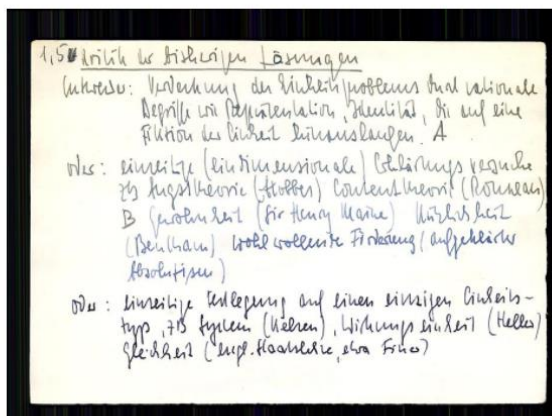 1,5 Kritik der bisherigen Lösungen
Entweder: Verdeckung des Einheitsproblems durch rationale
Begriffe wie Repräsentation, Identität, die auf eine
Fiktion der Einheit hinauslaufen. A
oder: einseitige (eindimensionale) Erklärungsversuche
zB Angsttheorie (Hobbes) Consenttheorie (Rousseau)
B Gewohnheit (Sir Henry Maine) Nützlichkeit
(Bentham) wohlwollende Förderung (aufgeklärter
Absolutismus)
oder: einseitige Festlegung auf einen einzigen Einheits-
typ, zB System (Kelsen), Wirkungseinheit (Heller)
Gleichheit (engl. Staatslehre, etwa Finer)